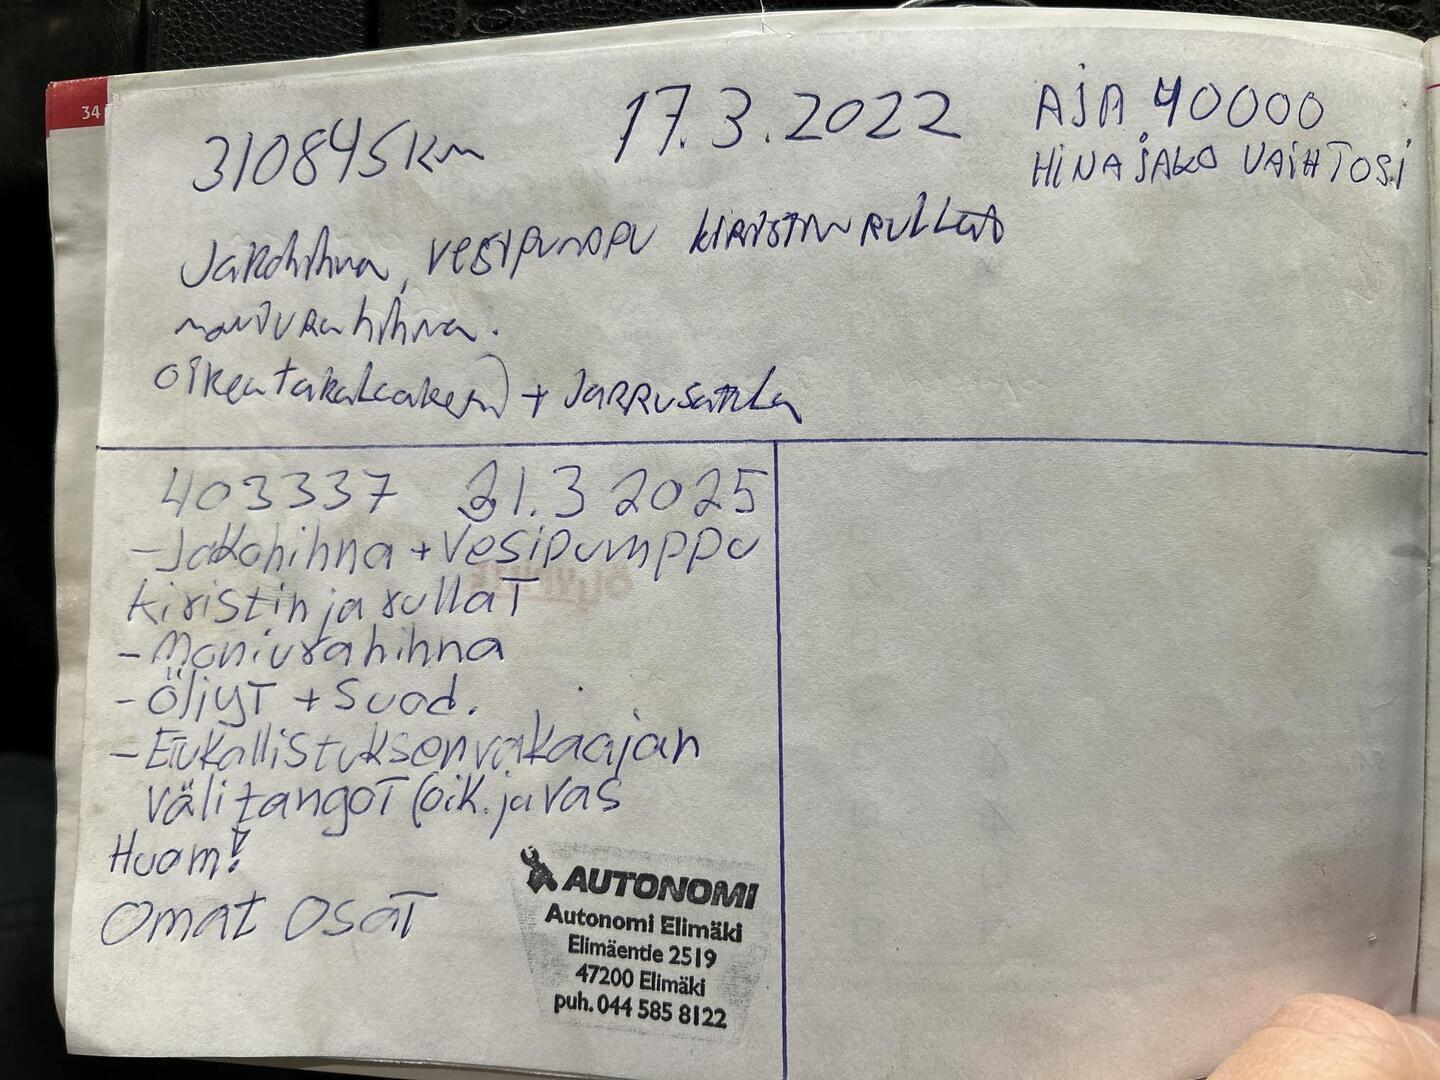 34
310845km 17.3.2022 AJA 40000
HINAJAKO VAIHTOSI
Jakohihna, vesipumppu kiristin rullat
moniurahihna.
oikea takalaakeri + Jarrusatula
403337 21.3 2025
-Jakohihna + Vesipumppu
kiristin ja rullat
-Moniurahihna
-Öljyt + Suod.
-Etukallistuksenvakaajan
välitangot (oik. ja vas
Huom!
Omat osat
AUTONOMI
Autonomi Elimäki
Elimäentie 2519
47200 Elimäki
puh. 044 585 8122